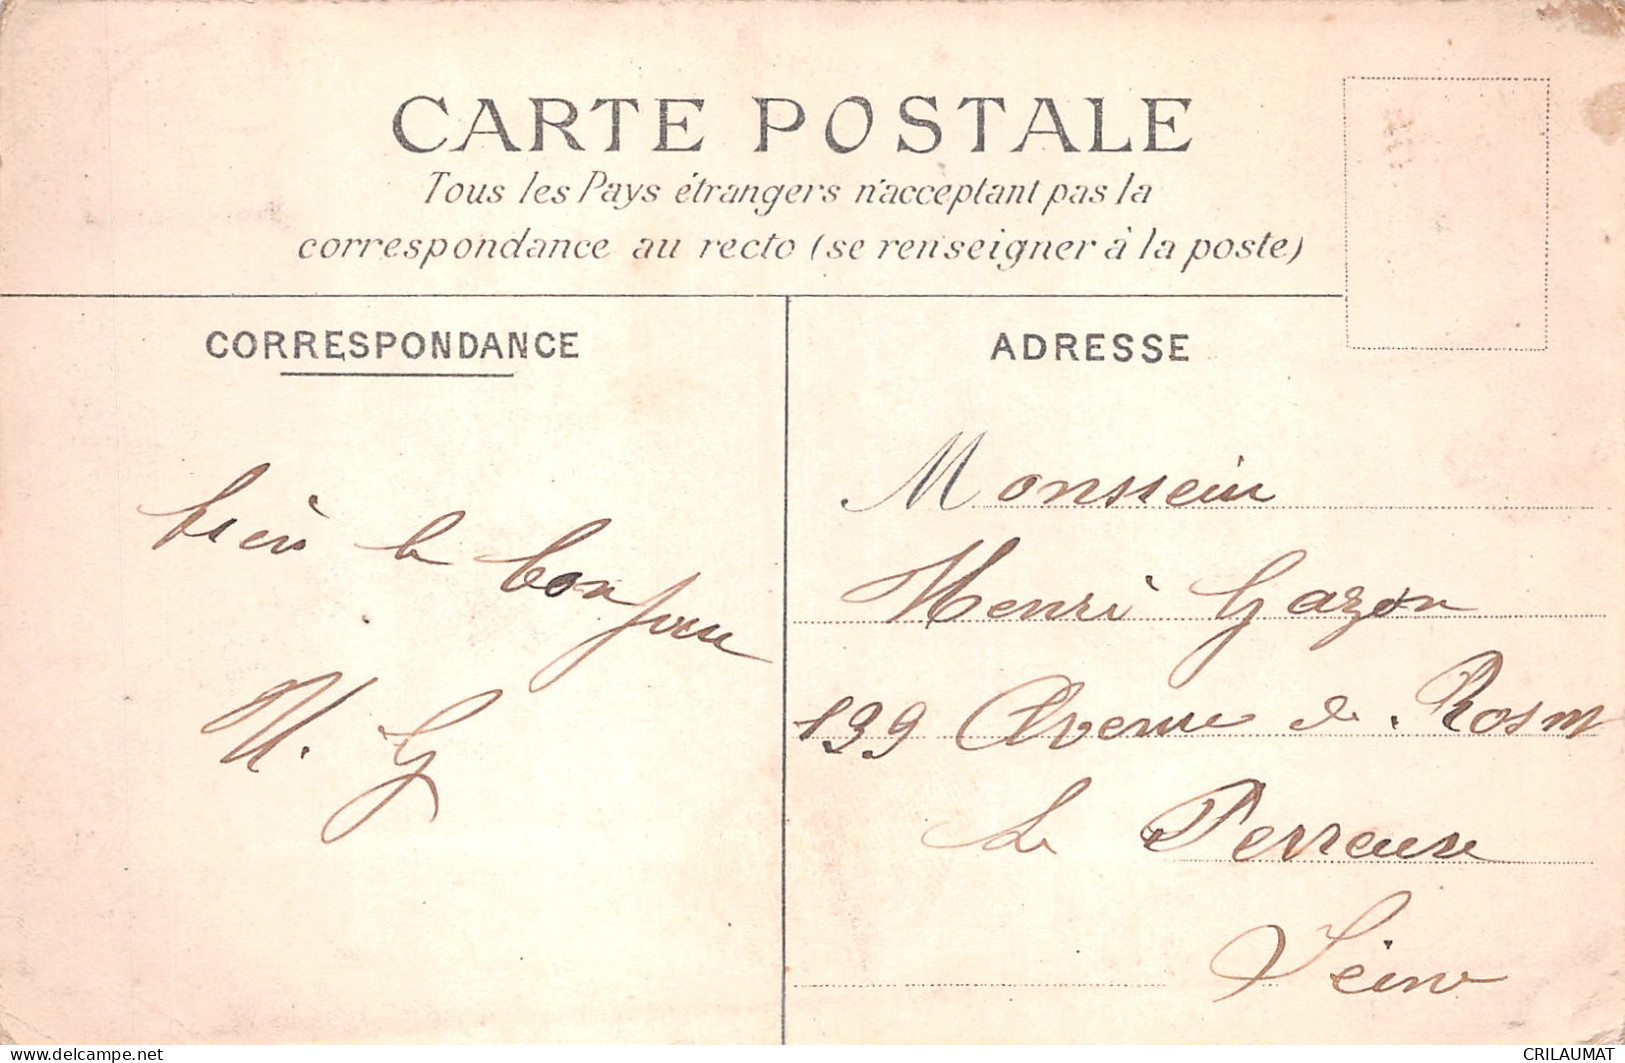 CARTE POSTALE
Tous les Pays étrangers n'acceptant pas la
correspondance au recto (se renseigner à la poste)
CORRESPONDANCE
ADRESSE
bien le bonjour
H. G
Monsieur
Henri Gazon
139 Avenue de Rosny
Le Perreux
Seine
www.delcampe.net
CRILAUMAT